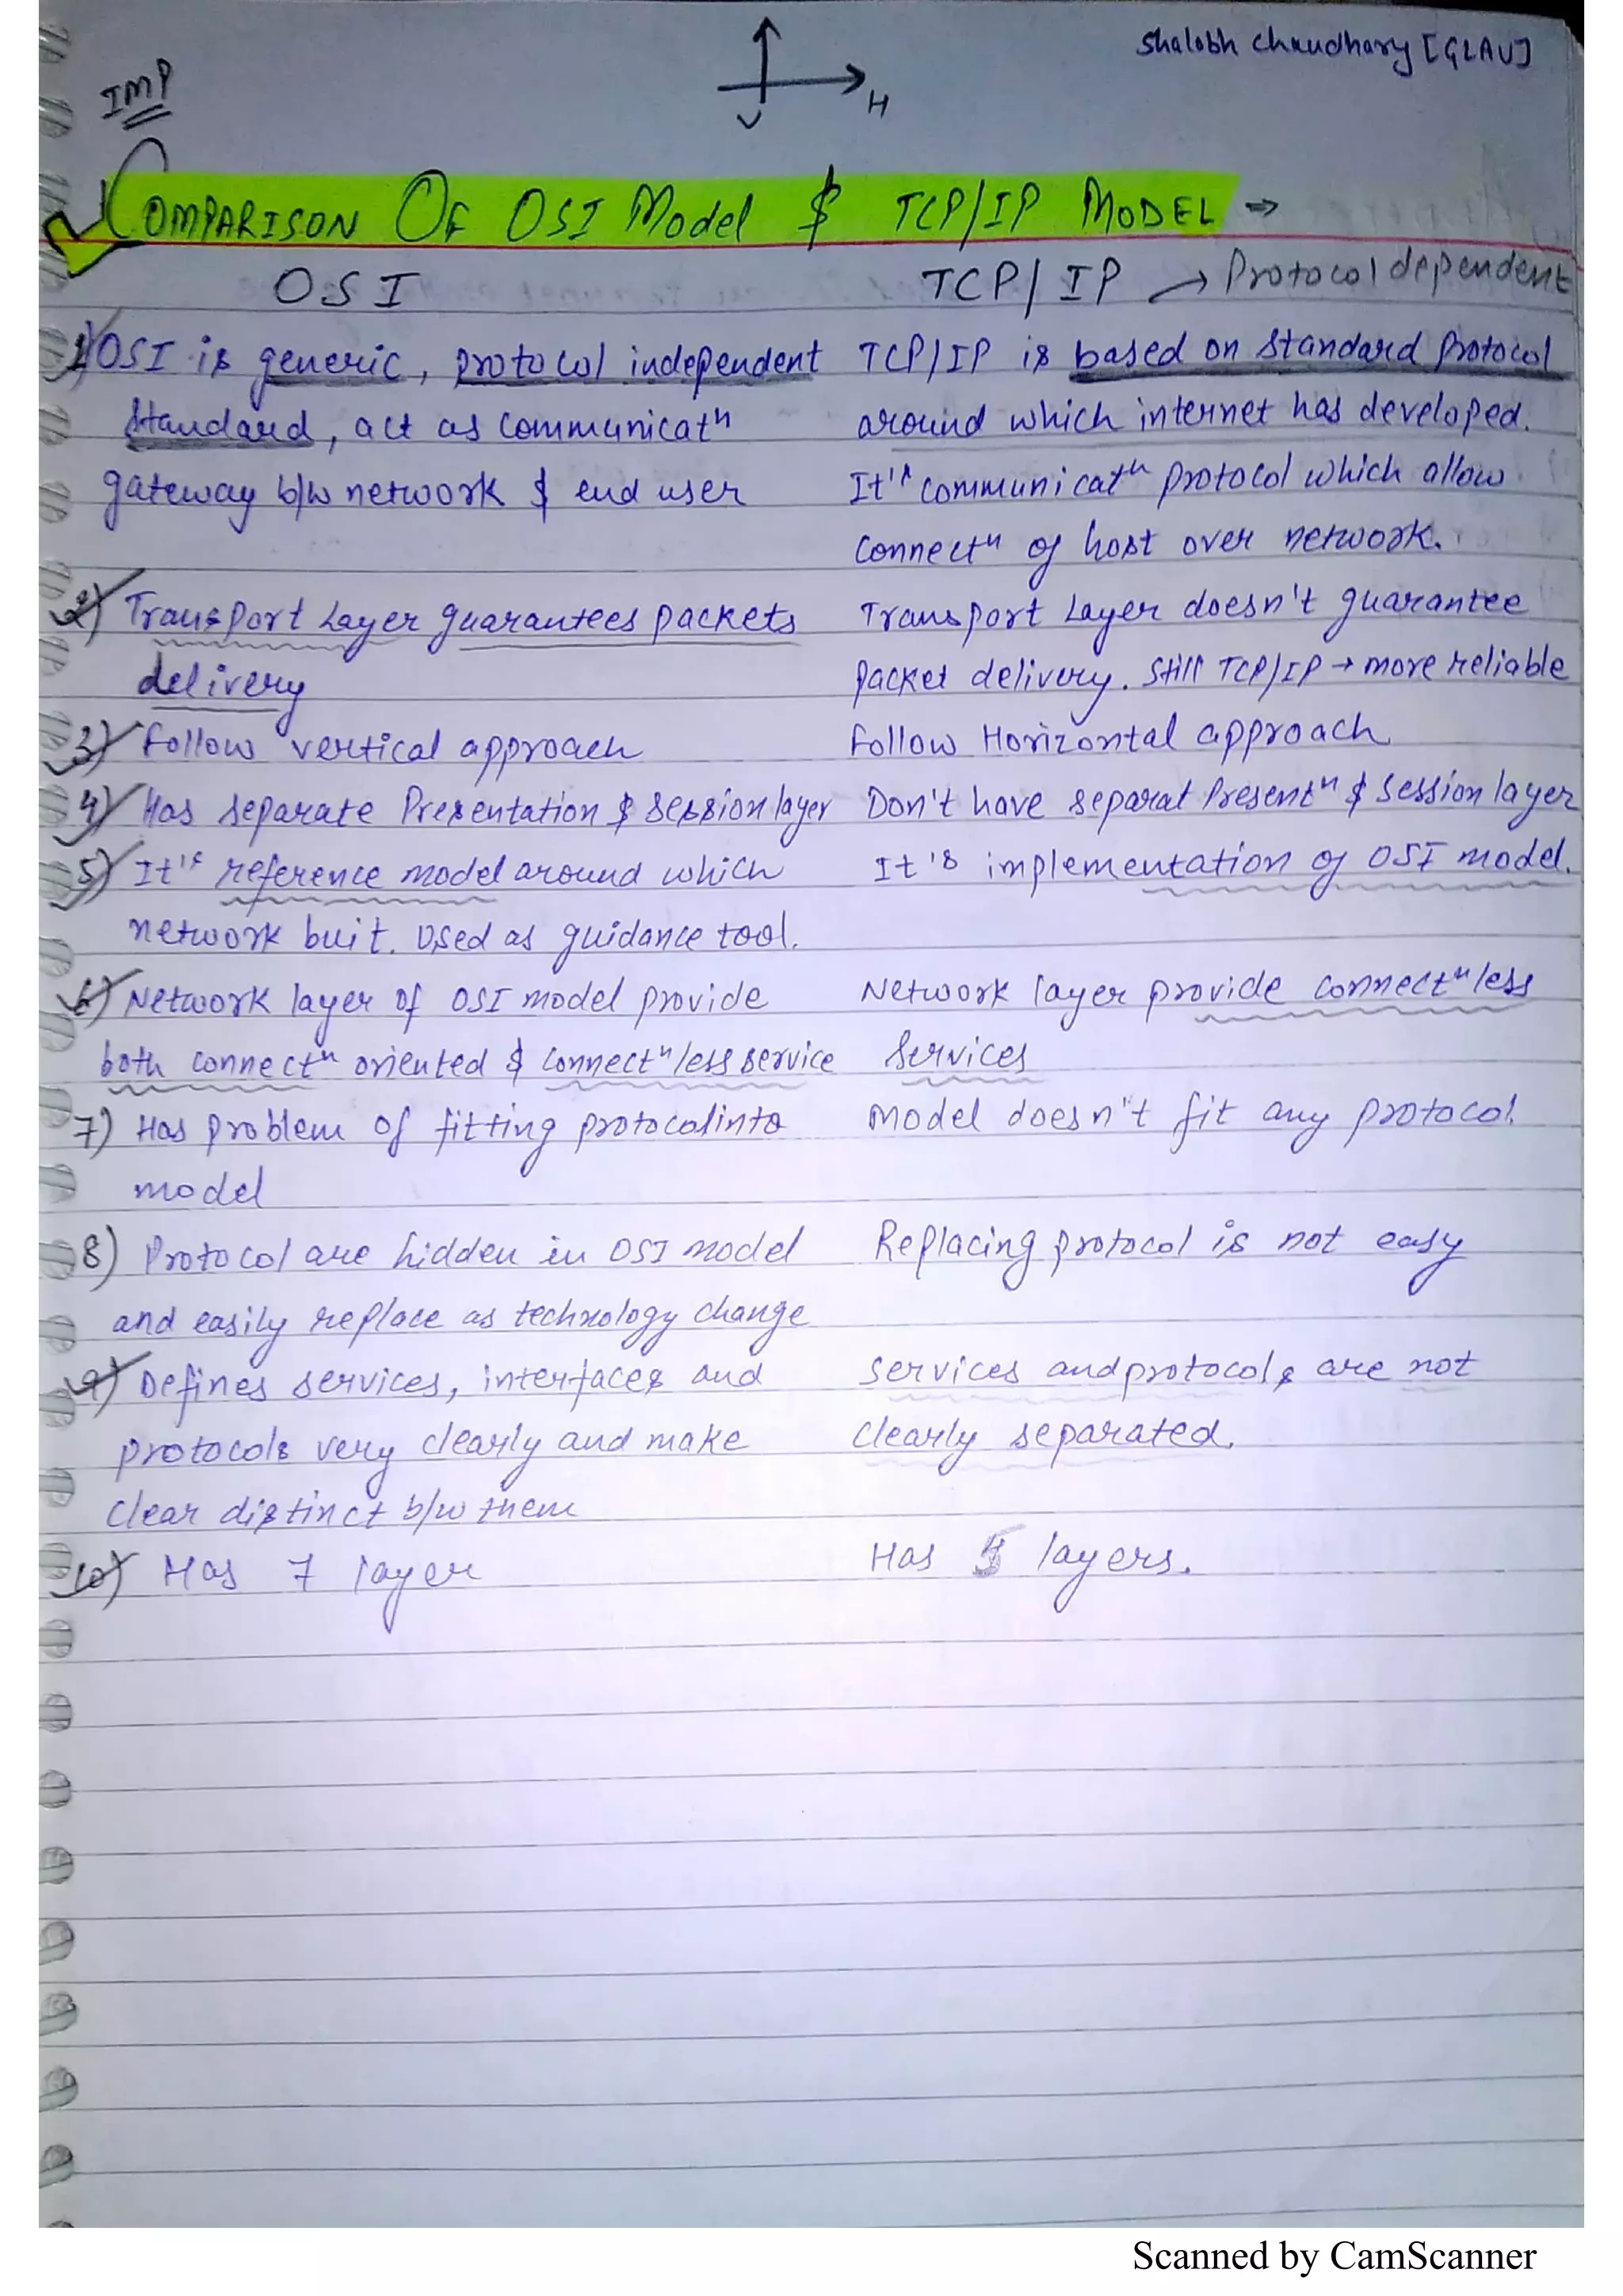 Shalobh Chaudhary [GLAU]
IMP
V
H
COMPARISON OF OSI Model & TCP/IP MODEL ⇒
OSI
TCP/IP → Protocol dependent
1) OSI is generic, protocol independent
standard, act as communicatⁿ
gateway b/w network & end user
TCP/IP is based on standard protocol
around which internet has developed.
It's communicatⁿ protocol which allow
connectⁿ of host over network.
2) Transport Layer guarantees packets
delivery
Transport Layer doesn't guarantee
packet delivery. Still TCP/IP → more reliable
3) Follow vertical approach
Follow Horizontal approach
4) Has separate Presentation & session layer
Don't have separat Presentⁿ & Session layer
5) It's reference model around which
network buit. Used as guidance tool.
It's implementation of OSI model.
6) Network layer of OSI model provide
both connectⁿ oriented & connectⁿless service
Network layer provide connectⁿless
services
7) Has problem of fitting protocol into
model
Model doesn't fit any protocol
8) Protocol are hidden in OSI model
and easily replace as technology change
Replacing protocol is not easy
9) Defines services, interfaces and
protocols very clearly and make
clear distinct b/w them
Services and protocols are not
clearly separated.
10) Has 7 layer
Has layers.
Scanned by CamScanner